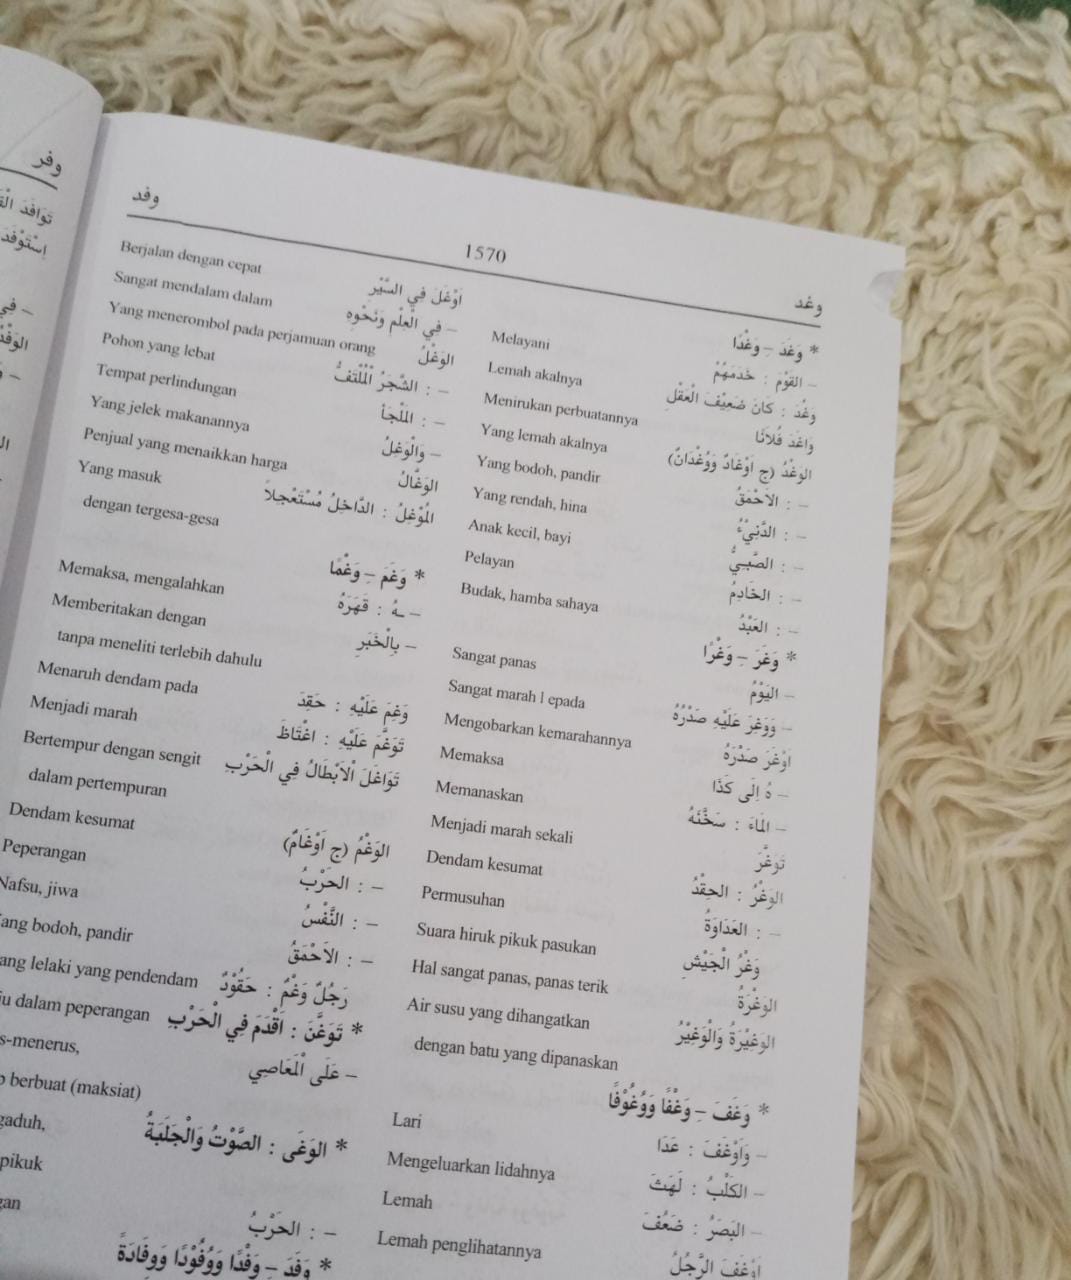 وفد
1570
وغد
* وَغَدَ – وَغْدًا
Melayani – القَوْمَ : خَدَمَهُمْ
Lemah akalnya وَغُدَ : كَانَ ضَعِيْفَ الْعَقْلِ
Menirukan perbuatannya وَاغَدَ فُلَانًا
Yang lemah akalnya الوَغْدُ (ج اَوْغَادٌ وَوُغْدَانٌ)
Yang bodoh, pandir – : الاَحْمَقُ
Yang rendah, hina – : الدَّنِيْءُ
Anak kecil, bayi – : الصَّبِيُّ
Pelayan – : الخَادِمُ
Budak, hamba sahaya – : العَبْدُ
* وَغَرَ – وَغْرًا
Sangat panas – اليَوْمُ
Sangat marah epada – وَوَغِرَ عَلَيْهِ صَدْرُهُ
Mengobarkan kemarahannya اَوْغَرَ صَدْرَهُ
Memaksa – هُ اِلَى كَذَا
Memanaskan – المَاءَ : سَخَّنَهُ
Menjadi marah sekali تَوَغَّرَ
Dendam kesumat الوَغْرُ : الحِقْدُ
Permusuhan – : العَدَاوَةُ
Suara hiruk pikuk pasukan وَغْرُ الْجَيْشِ
Hal sangat panas, panas terik الوَغْرَةُ
Air susu yang dihangatkan الوَغِيْرَةُ وَالْوَغِيْرُ
dengan batu yang dipanaskan
* وَغَفَ – وَغْفًا وَوُغُوْفًا
Lari – وَاَوْغَفَ : عَدَا
Mengeluarkan lidahnya – الكَلْبُ : لَهَثَ
Lemah – البَصَرُ : ضَعُفَ
Lemah penglihatannya اَوْغَفَ الرَّجُلُ
Berjalan dengan cepat اَوْغَلَ فِي السَّيْرِ
Sangat mendalam dalam – فِي الْعِلْمِ وَنَحْوِهِ
Yang menerombol pada perjamuan orang الوَغْلُ
Pohon yang lebat – : الشَّجَرُ الْمُلْتَفُّ
Tempat perlindungan – : المَلْجَأُ
Yang jelek makanannya – وَالْوَغِلُ
Penjual yang menaikkan harga الوَغَّالُ
Yang masuk المُوْغِلُ : الدَّاخِلُ مُسْتَعْجِلاً
dengan tergesa-gesa
* وَغَمَ – وَغْمًا
Memaksa, mengalahkan – ـهُ : قَهَرَهُ
Memberitakan dengan – بِالْخَبَرِ
tanpa meneliti terlebih dahulu
Menaruh dendam pada وَغِمَ عَلَيْهِ : حَقِدَ
Menjadi marah تَوَغَّمَ عَلَيْهِ : اغْتَاظَ
Bertempur dengan sengit تَوَاغَلَ الْاَبْطَالُ فِي الْحَرْبِ
dalam pertempuran
Dendam kesumat الوَغْمُ (ج اَوْغَامٌ)
Peperangan – : الحَرْبُ
Nafsu, jiwa – : النَّفْسُ
ang bodoh, pandir – : الاَحْمَقُ
ang lelaki yang pendendam رَجُلٌ وَغْمٌ : حَقُوْدٌ
ju dalam peperangan * تَوَغَّنَ : اَقْدَمَ فِي الْحَرْبِ
s-menerus, – عَلَى الْمَعَاصِي
berbuat (maksiat)
gaduh, * الوَغَى : الصَّوْتُ وَالْجَلَبَةُ
pikuk
gan – : الحَرْبُ
* وَفَدَ – وَفْدًا وَوُفُوْدًا وَوِفَادَةً
وفر
تَوَافَدَ
اِسْتَوْفَدَ